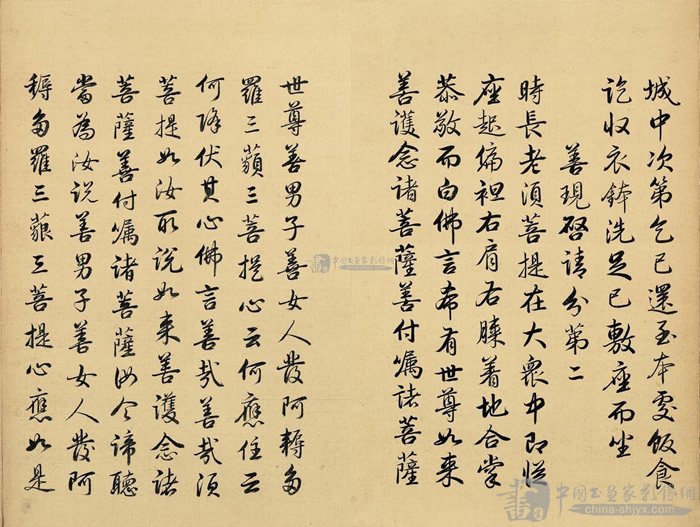 城中次第乞已還至本處飯食
訖收衣鉢洗足已敷座而坐
善現啓請分第二
時長老須菩提在大衆中即從
座起偏袒右肩右膝着地合掌
恭敬而白佛言希有世尊如来
善護念諸菩薩善付嘱諸菩薩
世尊善男子善女人發阿耨多
羅三藐三菩提心云何應住云
何降伏其心佛言善哉善哉須
菩提如汝所說如来善護念諸
菩薩善付嘱諸菩薩汝今諦聽
當為汝說善男子善女人發阿
耨多羅三藐三菩提心應如是
中国书画家影像網
china-shjyx.com